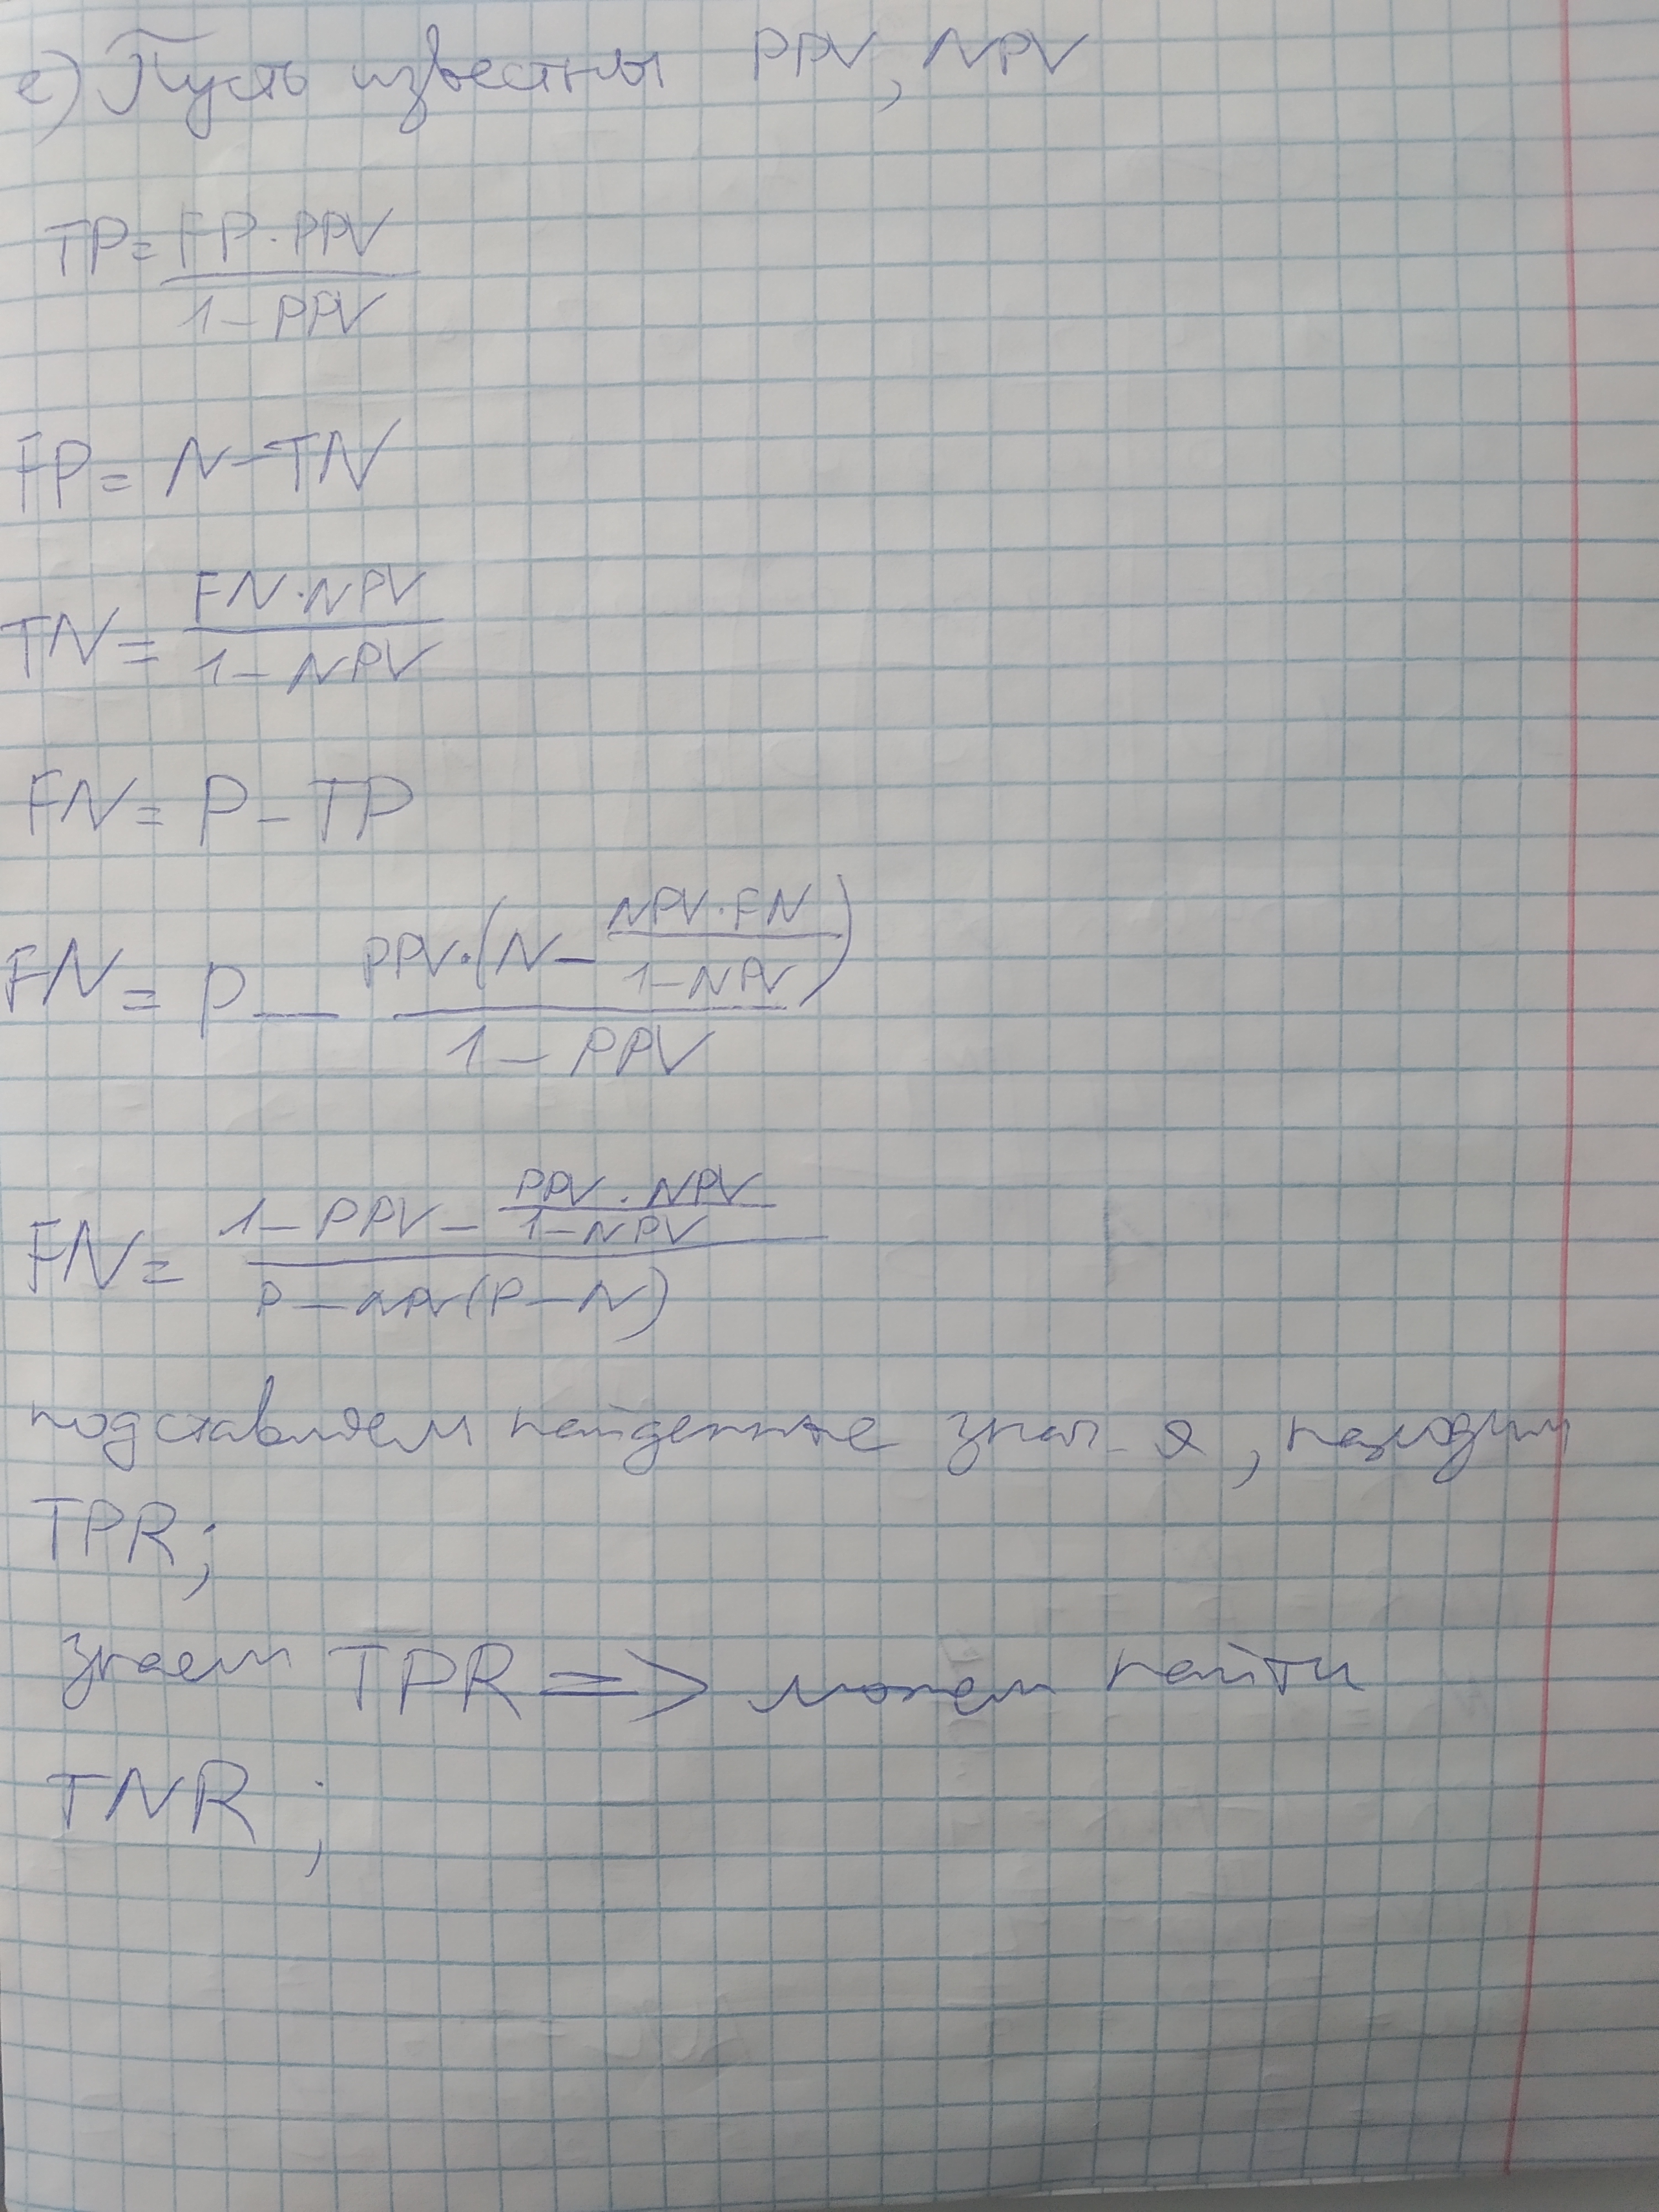 е) Пусть известны PPV, NPV
TP = FP · PPV / 1 - PPV
FP = N - TN
TN = FN · NPV / 1 - NPV
FN = P - TP
FN = P - PPV · (N - NPV · FN / 1 - NPV) / 1 - PPV
FN = 1 - PPV - PPV · NPV / 1 - NPV / P - (P - N)
подставляем найденные знач-я, находим
TPR;
знаем TPR => можем найти
TNR ;